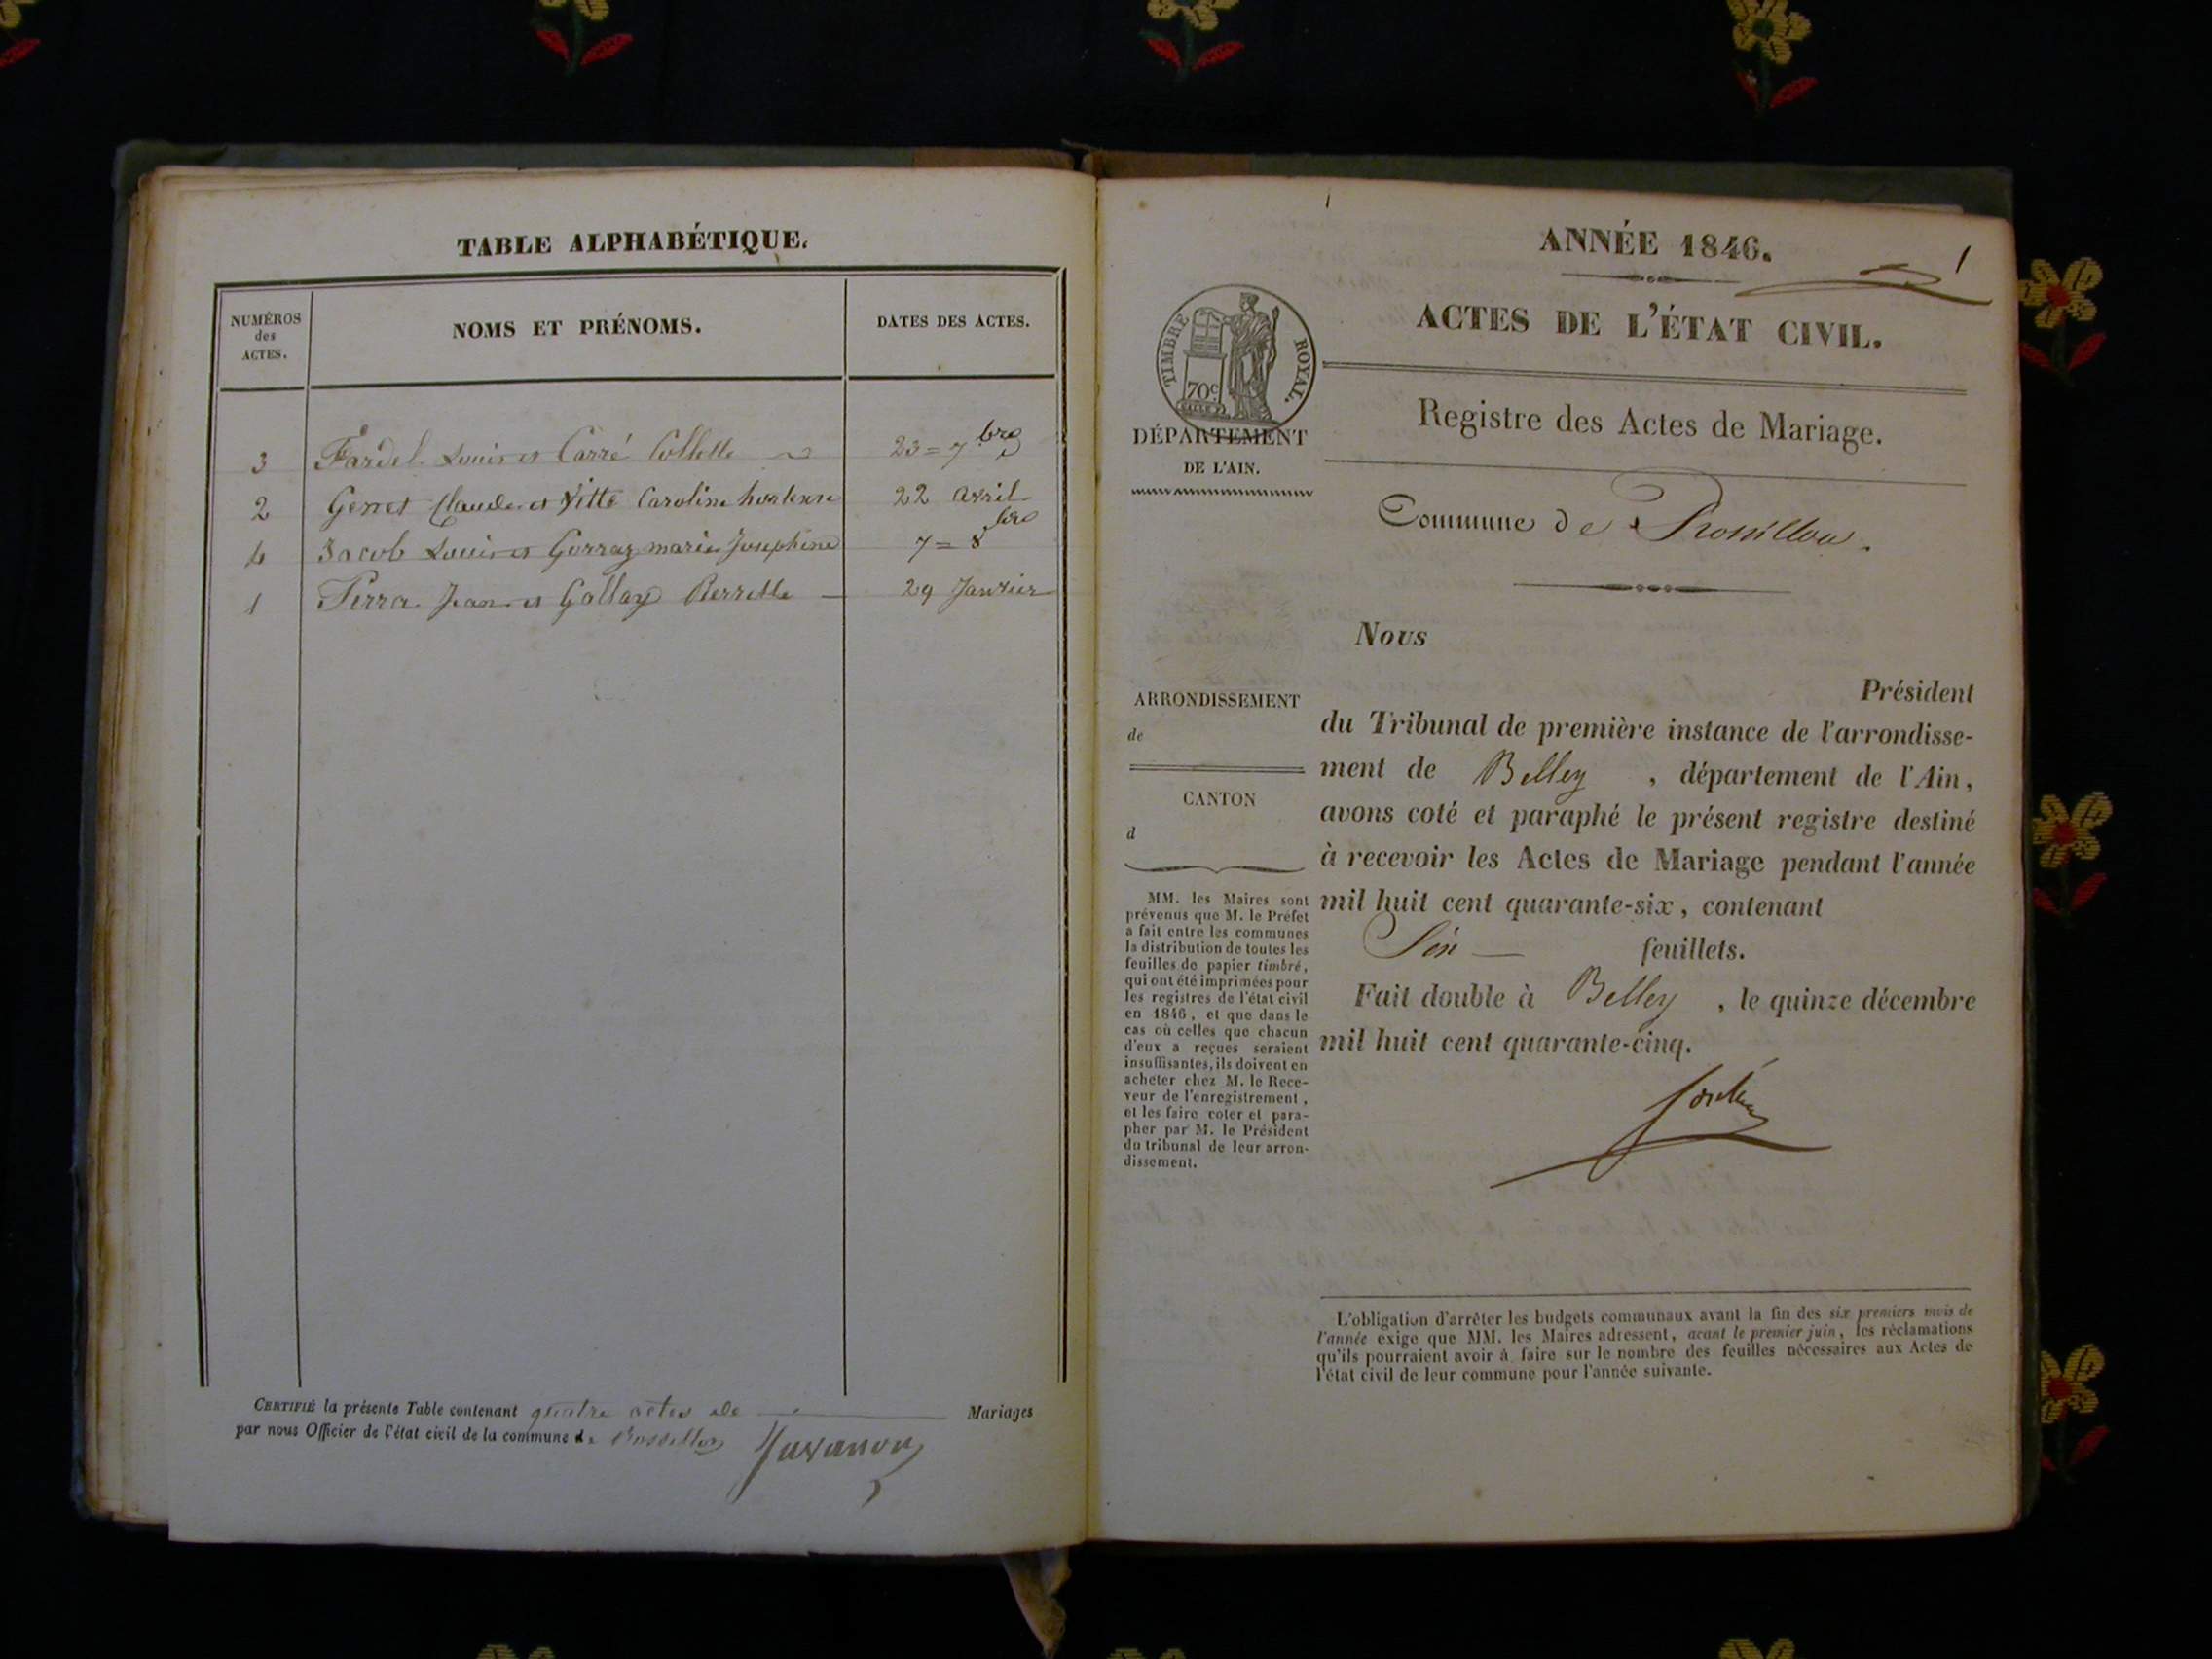 TABLE ALPHABÉTIQUE.
NUMÉROS
des
ACTES.
NOMS ET PRÉNOMS.
DATES DES ACTES.
3 Fardel Louis et Carré Collette 23 = 7bre
2 Claude et Vitte Caroline hortense 22 avril
4 Jacob Louis et Gorraz marie Josephine 7 = 8bre
1 Perra Jean et Gallay Pierrette 29 Janvier
CERTIFIÉ la présente Table contenant quatre actes de Mariages
par nous Officier de l'état civil de la commune de Rossillon
1
ANNÉE 1846.
ACTES DE L'ÉTAT CIVIL.
TIMBRE ROYAL.
70c
Registre des Actes de Mariage.
DÉPARTEMENT
DE L'AIN.
Commune de Rossillon.
Nous
Président
ARRONDISSEMENT
de
CANTON
d
du Tribunal de première instance de l'arrondisse-
ment de Belley , département de l'Ain,
avons coté et paraphé le présent registre destiné
à recevoir les Actes de Mariage pendant l'année
mil huit cent quarante-six, contenant
Six feuillets.
Fait double à Belley , le quinze décembre
mil huit cent quarante-cinq.
MM. les Maires sont
prévenus que M. le Préfet
a fait entre les communes
la distribution de toutes les
feuilles de papier timbré,
qui ont été imprimées pour
les registres de l'état civil
en 1846, et que dans le
cas où celles que chacun
d'eux a reçues seraient
insuffisantes, ils doivent en
acheter chez M. le Rece-
veur de l'enregistrement,
et les faire coter et para-
pher par M. le Président
du tribunal de leur arron-
dissement.
L'obligation d'arrêter les budgets communaux avant la fin des six premiers mois de
l'année exige que MM. les Maires adressent, avant le premier juin, les réclamations
qu'ils pourraient avoir à faire sur le nombre des feuilles nécessaires aux Actes de
l'état civil de leur commune pour l'année suivante.